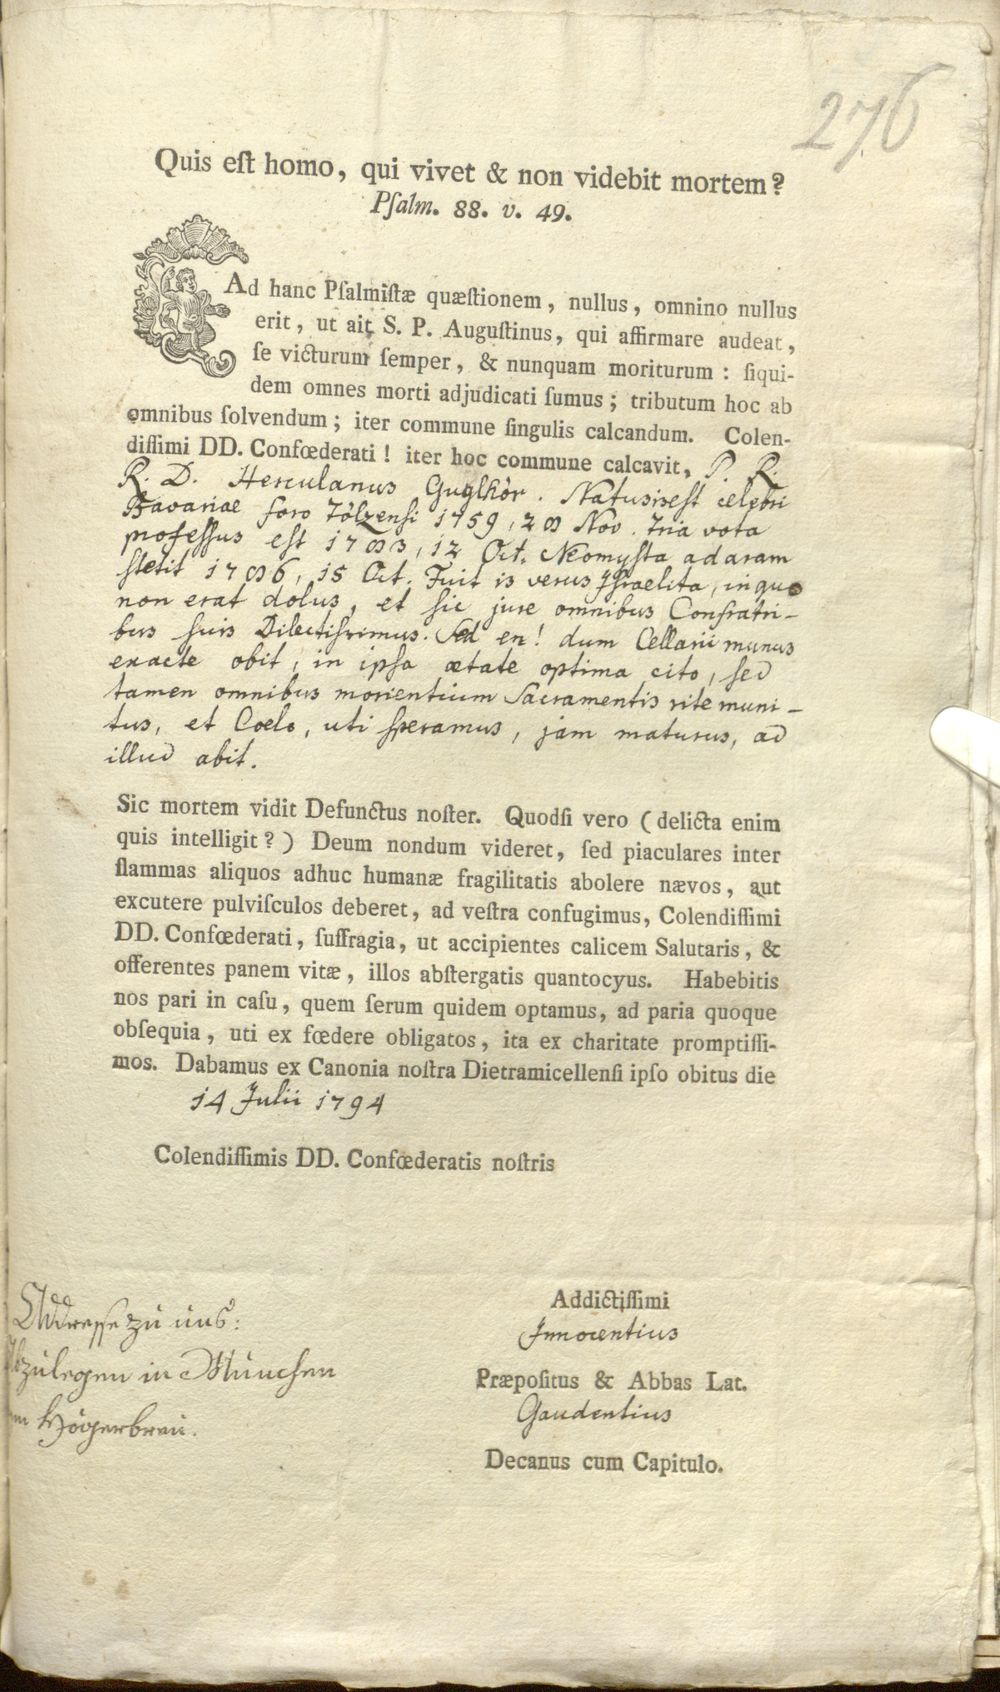 276
Quis eſt homo, qui vivet & non videbit mortem?
Pſalm. 88. v. 49.
Ad hanc Pſalmiſtæ quæſtionem, nullus, omnino nullus
erit, ut ait S. P. Auguſtinus, qui affirmare audeat,
ſe victurum ſemper, & nunquam moriturum: ſiqui-
dem omnes morti adjudicati ſumus; tributum hoc ab
omnibus ſolvendum; iter commune ſingulis calcandum. Colen-
diſſimi DD. Confœderati! iter hoc commune calcavit, P. R.
R. D. Herculanus Guglhör. Natus is est celebri
Bavariae foro Tölzensi 1759, 28 Nov. tria vota
professus est 1783, 12 Oct. Neomysta ad aram
stetit 1786, 15 Oct. Fuit is verus Israelita, in quo
non erat dolus, et sic jure omnibus Confratri-
bus suis Dilectissimus. Sed en! dum Cellarii munus
exacte obit, in ipsa ætate optima cito, sed
tamen omnibus morientium Sacramentis rite muni-
tus, et Coelo, uti speramus, jam maturus, ad
illud abit.
Sic mortem vidit Defunctus noſter. Quodſi vero (delicta enim
quis intelligit?) Deum nondum videret, ſed piaculares inter
flammas aliquos adhuc humanæ fragilitatis abolere nævos, aut
excutere pulviſculos deberet, ad veſtra confugimus, Colendiſſimi
DD. Confœderati, ſuffragia, ut accipientes calicem Salutaris, &
offerentes panem vitæ, illos abſtergatis quantocyus. Habebitis
nos pari in caſu, quem ſerum quidem optamus, ad paria quoque
obſequia, uti ex fœdere obligatos, ita ex charitate promptiſſi-
mos. Dabamus ex Canonia noſtra Dietramicellenſi ipſo obitus die
14 Julii 1794
Colendiſſimis DD. Confœderatis noſtris
Addictiſſimi
Innocentius
Præpoſitus & Abbas Lat.
Gaudentius
Decanus cum Capitulo.
Addresse zu uns:
Abzulegen in München
Högerbreu.